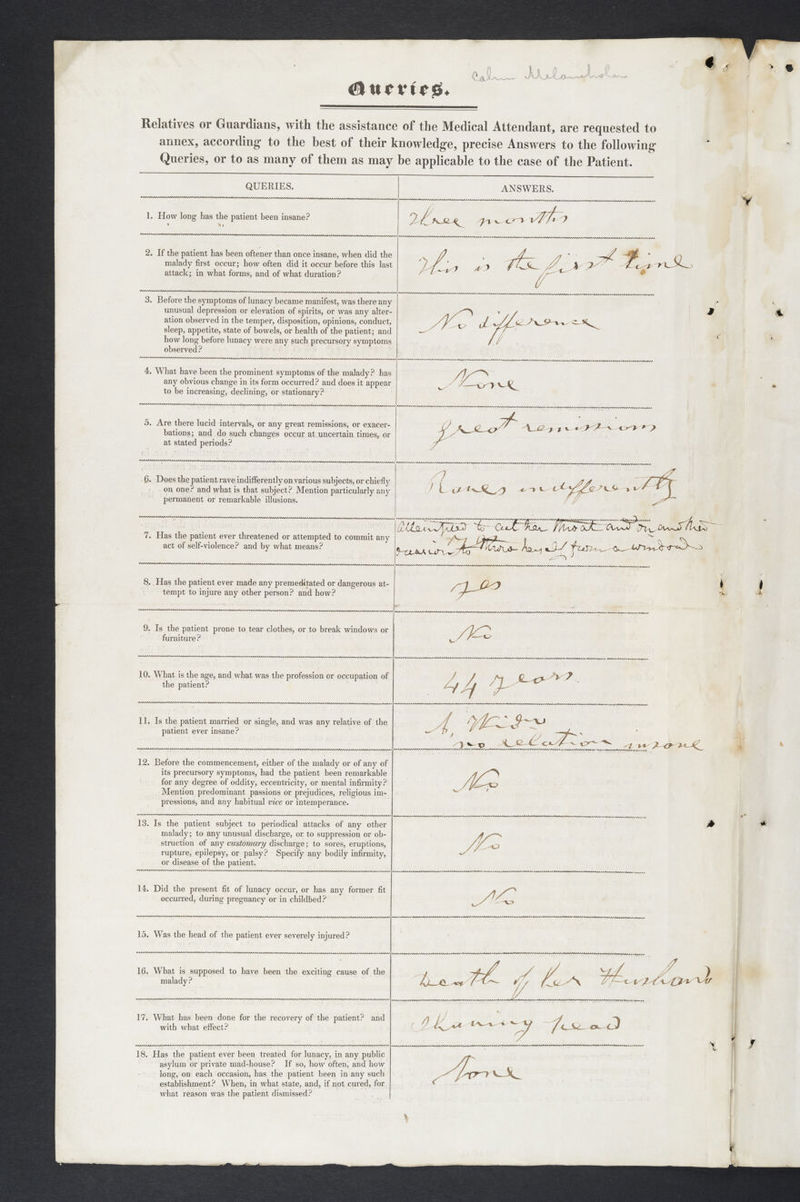 Calm Melancholia
Queries.
Relatives or Guardians, with the assistance of the Medical Attendant, are requested to
annex, according to the best of their knowledge, precise Answers to the following
Queries, or to as many of them as may be applicable to the case of the Patient.
QUERIES.
ANSWERS.
1. How long has the patient been insane?
Three months
2. If the patient has been oftener than once insane, when did the
malady first occur; how often did it occur before this last
attack; in what forms, and of what duration?
This is the first time
3. Before the symptoms of lunacy became manifest, was there any
unusual depression or elevation of spirits, or was any alter-
ation observed in the temper, disposition, opinions, conduct,
sleep, appetite, state of bowels, or health of the patient; and
how long before lunacy were any such precursory symptoms
observed?
No difference
4. What have been the prominent symptoms of the malady? has
any obvious change in its form occurred? and does it appear
to be increasing, declining, or stationary?
None
5. Are there lucid intervals, or any great remissions, or exacer-
bations; and do such changes occur at uncertain times, or
at stated periods?
great remissions
6. Does the patient rave indifferently on various subjects, or chiefly
on one? and what is that subject? Mention particularly any
permanent or remarkable illusions.
Raves indifferently
7. Has the patient ever threatened or attempted to commit any
act of self-violence? and by what means?
Attempted to cut her throat and on another
occasion to throw herself from a window
8. Has the patient ever made any premeditated or dangerous at-
tempt to injure any other person? and how?
yes
9. Is the patient prone to tear clothes, or to break windows or
furniture?
No
10. What is the age, and what was the profession or occupation of
the patient?
44 years
11. Is the patient married or single, and was any relative of the
patient ever insane?
A,
no relation insane
12. Before the commencement, either of the malady or of any of
its precursory symptoms, had the patient been remarkable
for any degree of oddity, eccentricity, or mental infirmity?
Mention predominant passions or prejudices, religious im-
pressions, and any habitual vice or intemperance.
No
13. Is the patient subject to periodical attacks of any other
malady; to any unusual discharge, or to suppression or ob-
struction of any customary discharge; to sores, eruptions,
rupture, epilepsy, or palsy? Specify any bodily infirmity,
or disease of the patient.
No
14. Did the present fit of lunacy occur, or has any former fit
occurred, during pregnancy or in childbed?
No
15. Was the head of the patient ever severely injured?
16. What is supposed to have been the exciting cause of the
malady?
Death of her Husband
17. What has been done for the recovery of the patient? and
with what effect?
Shaving head
18. Has the patient ever been treated for lunacy, in any public
asylum or private mad-house? If so, how often, and how
long, on each occasion, has the patient been in any such
establishment? When, in what state, and, if not cured, for
what reason was the patient dismissed?
None